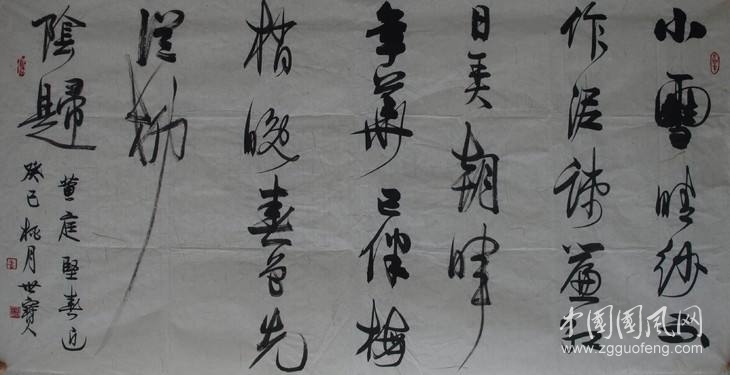 小雪晴沙不
作泥疎簾紅
日弄朝暉
年華已伴梅
梢晚春色先
從柳
陰歸
黄庭堅春近
癸巳桃月世寶
中國國風网
www.zgguofeng.com